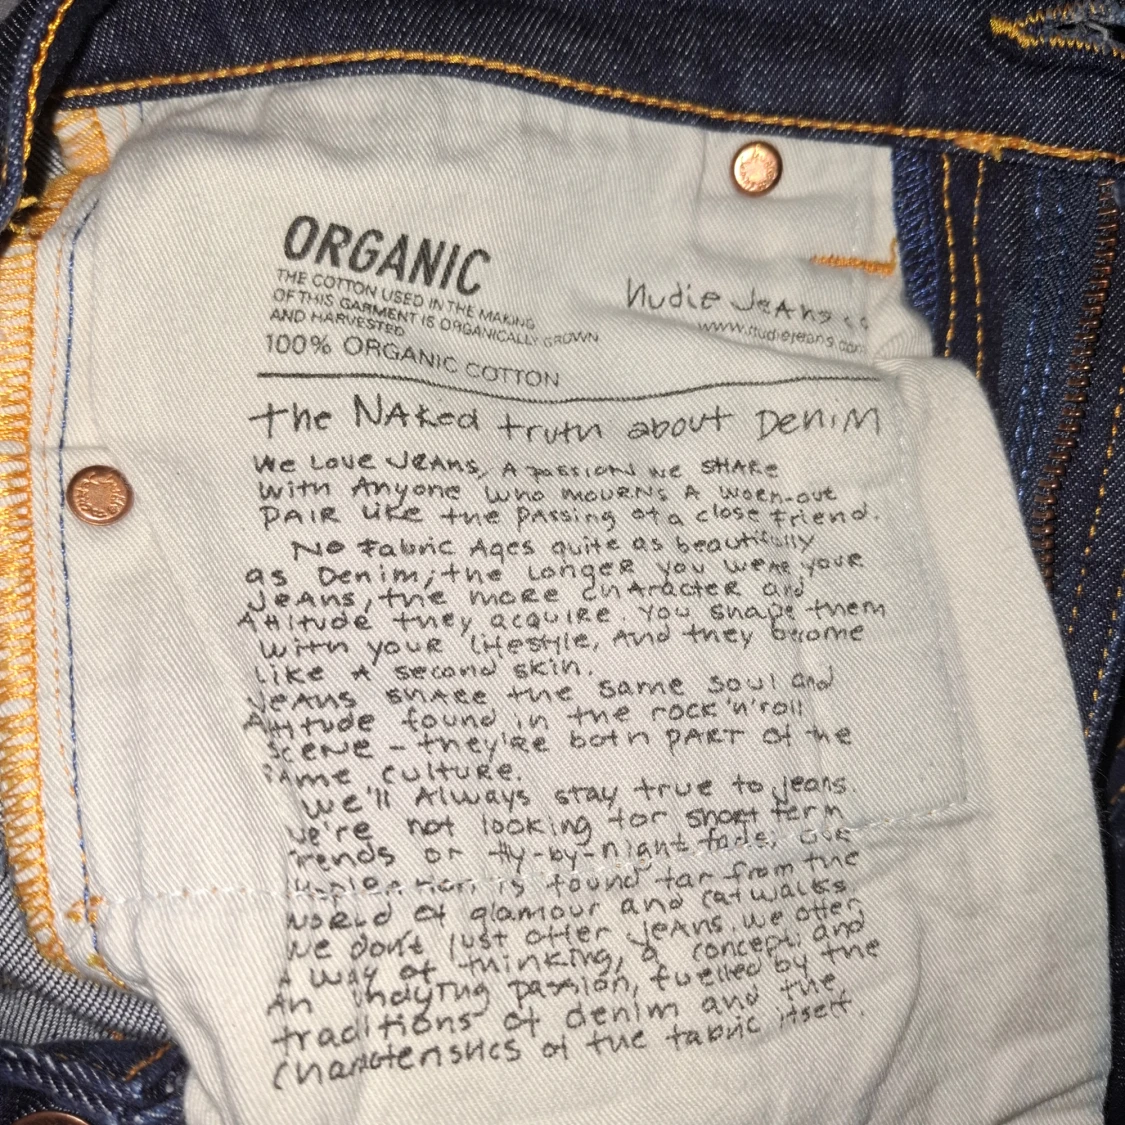 ORGANIC
THE COTTON USED IN THE MAKING
OF THIS GARMENT IS ORGANICALLY GROWN
AND HARVESTED
100% ORGANIC COTTON
Nudie Jeans co
www.nudiejeans.com
the NAked truth about Denim
We Love JeAns, A passion we SHARe
with Anyone who mourns A worn-out
PAIR like the passing of a close friend.
No fabric Ages quite as beautifully
as Denim; the Longer you weAR your
JeAns, the more chAracter and
Attitude they acquire. You shape them
with your lifestyle, And they become
like A second skin.
JeAns shaRe the same soul and
Attitude found in the rock'n'roll
scene - they're both pART of the
sAme culture.
We'll Always stay true to jeans.
We're not looking for short term
trends or fly-by-night fads; our
is found far from the
world of glamour and catwalks.
We don't just offer jeAns. We offer
A way of thinking, a concept and
An undying passion, fuelled by the
traditions of denim and the
charActeristics of the fabric itself.